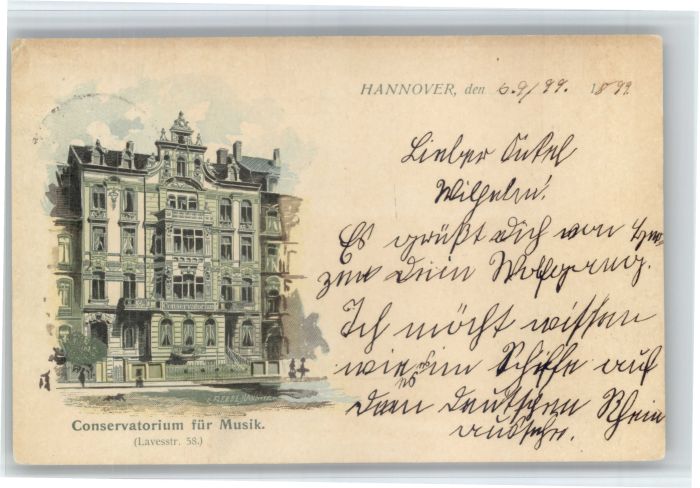 HANNOVER, den 6.9/99. 1899.
Lieber Onkel
Wilhelm!
Es grüßt Dich von Her-
zen Dein Wolfgang.
Ich möcht wissen
wie es im Schiffe auf
dem deutschen Rhein
aussehe.
Conservatorium
Conservatorium für Musik.
(Lavesstr. 58.)